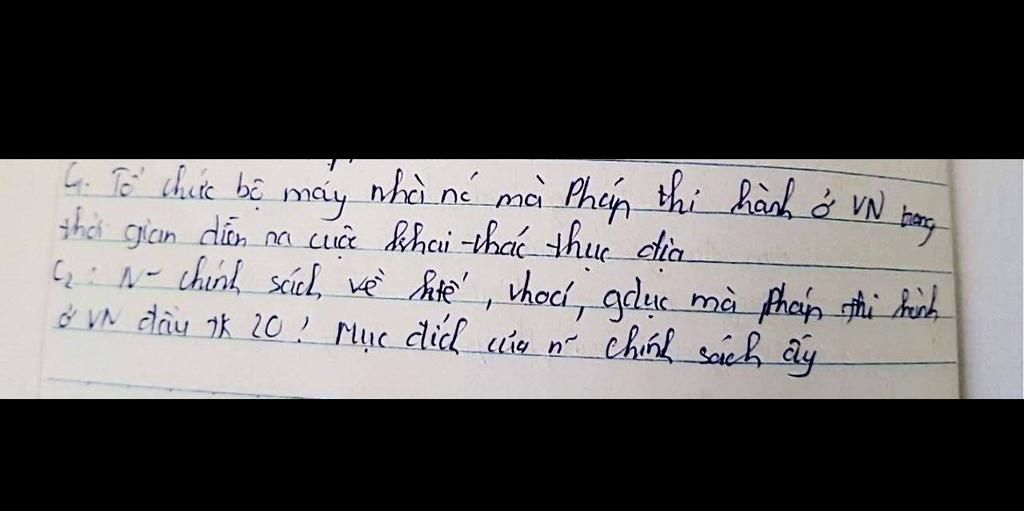 C1: Tổ chức bộ máy nhà nc mà Pháp thi hành ở VN trong
thời gian diễn ra cuộc khai thác thuộc địa
C2: N~ chính sách về ktế, vhoá, gdục mà Pháp thi hành
ở VN đầu TK 20? Mục đích của n~ chính sách ấy